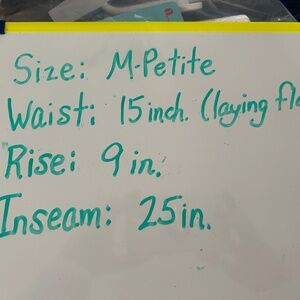 Size: M-Petite
Waist: 15 inch. (laying
Rise: 9 in.
Inseam: 25 in.